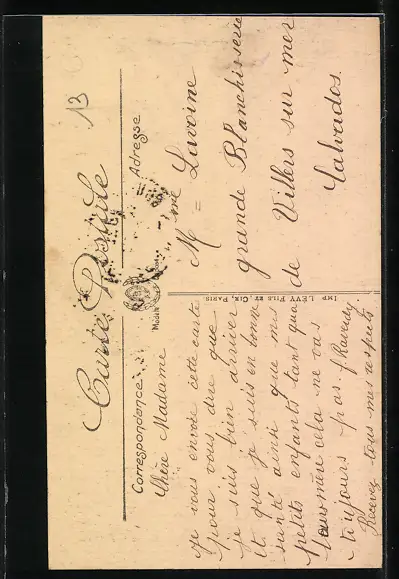 13
Carte Postale
Correspondence
Adresse
Chère Madame
je vous envoie cette carte
pour vous dire que
je suis bien arriver
et que je suis en bonne
santé ainsi que mes
petits enfants tant qua
leur mère cela ne vas
toujours pas.
Recevez tous mes respects
IMP. LÉVY FILS ET CIE, PARIS.
Mme Lavoine
grande Blanchisserie
de Villers sur mer
Calvados.